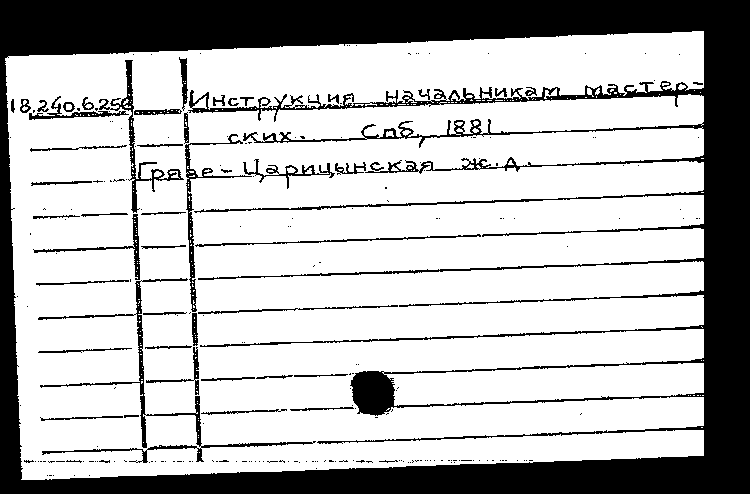 18.240.6.256 Инструкция начальникам мастер-
ских. Спб, 1881.
Грязе-Царицынская ж.д.